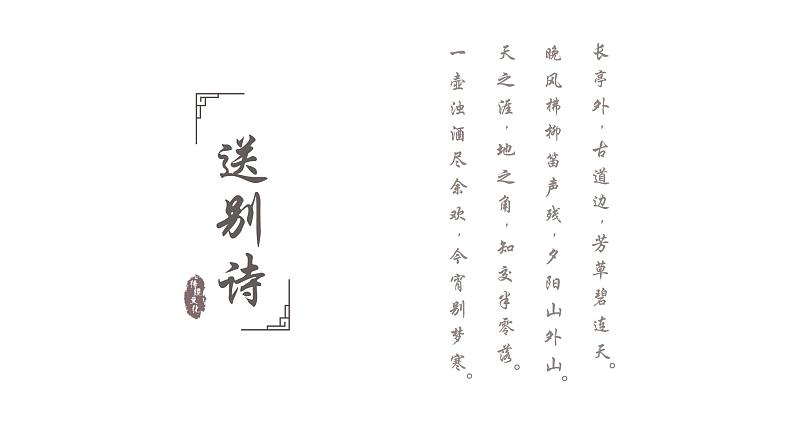 送别诗
传统文化
长亭外，古道边，芳草碧连天。
晚风拂柳笛声残，夕阳山外山。
天之涯，地之角，知交半零落。
一壶浊酒尽余欢，今宵别梦寒。